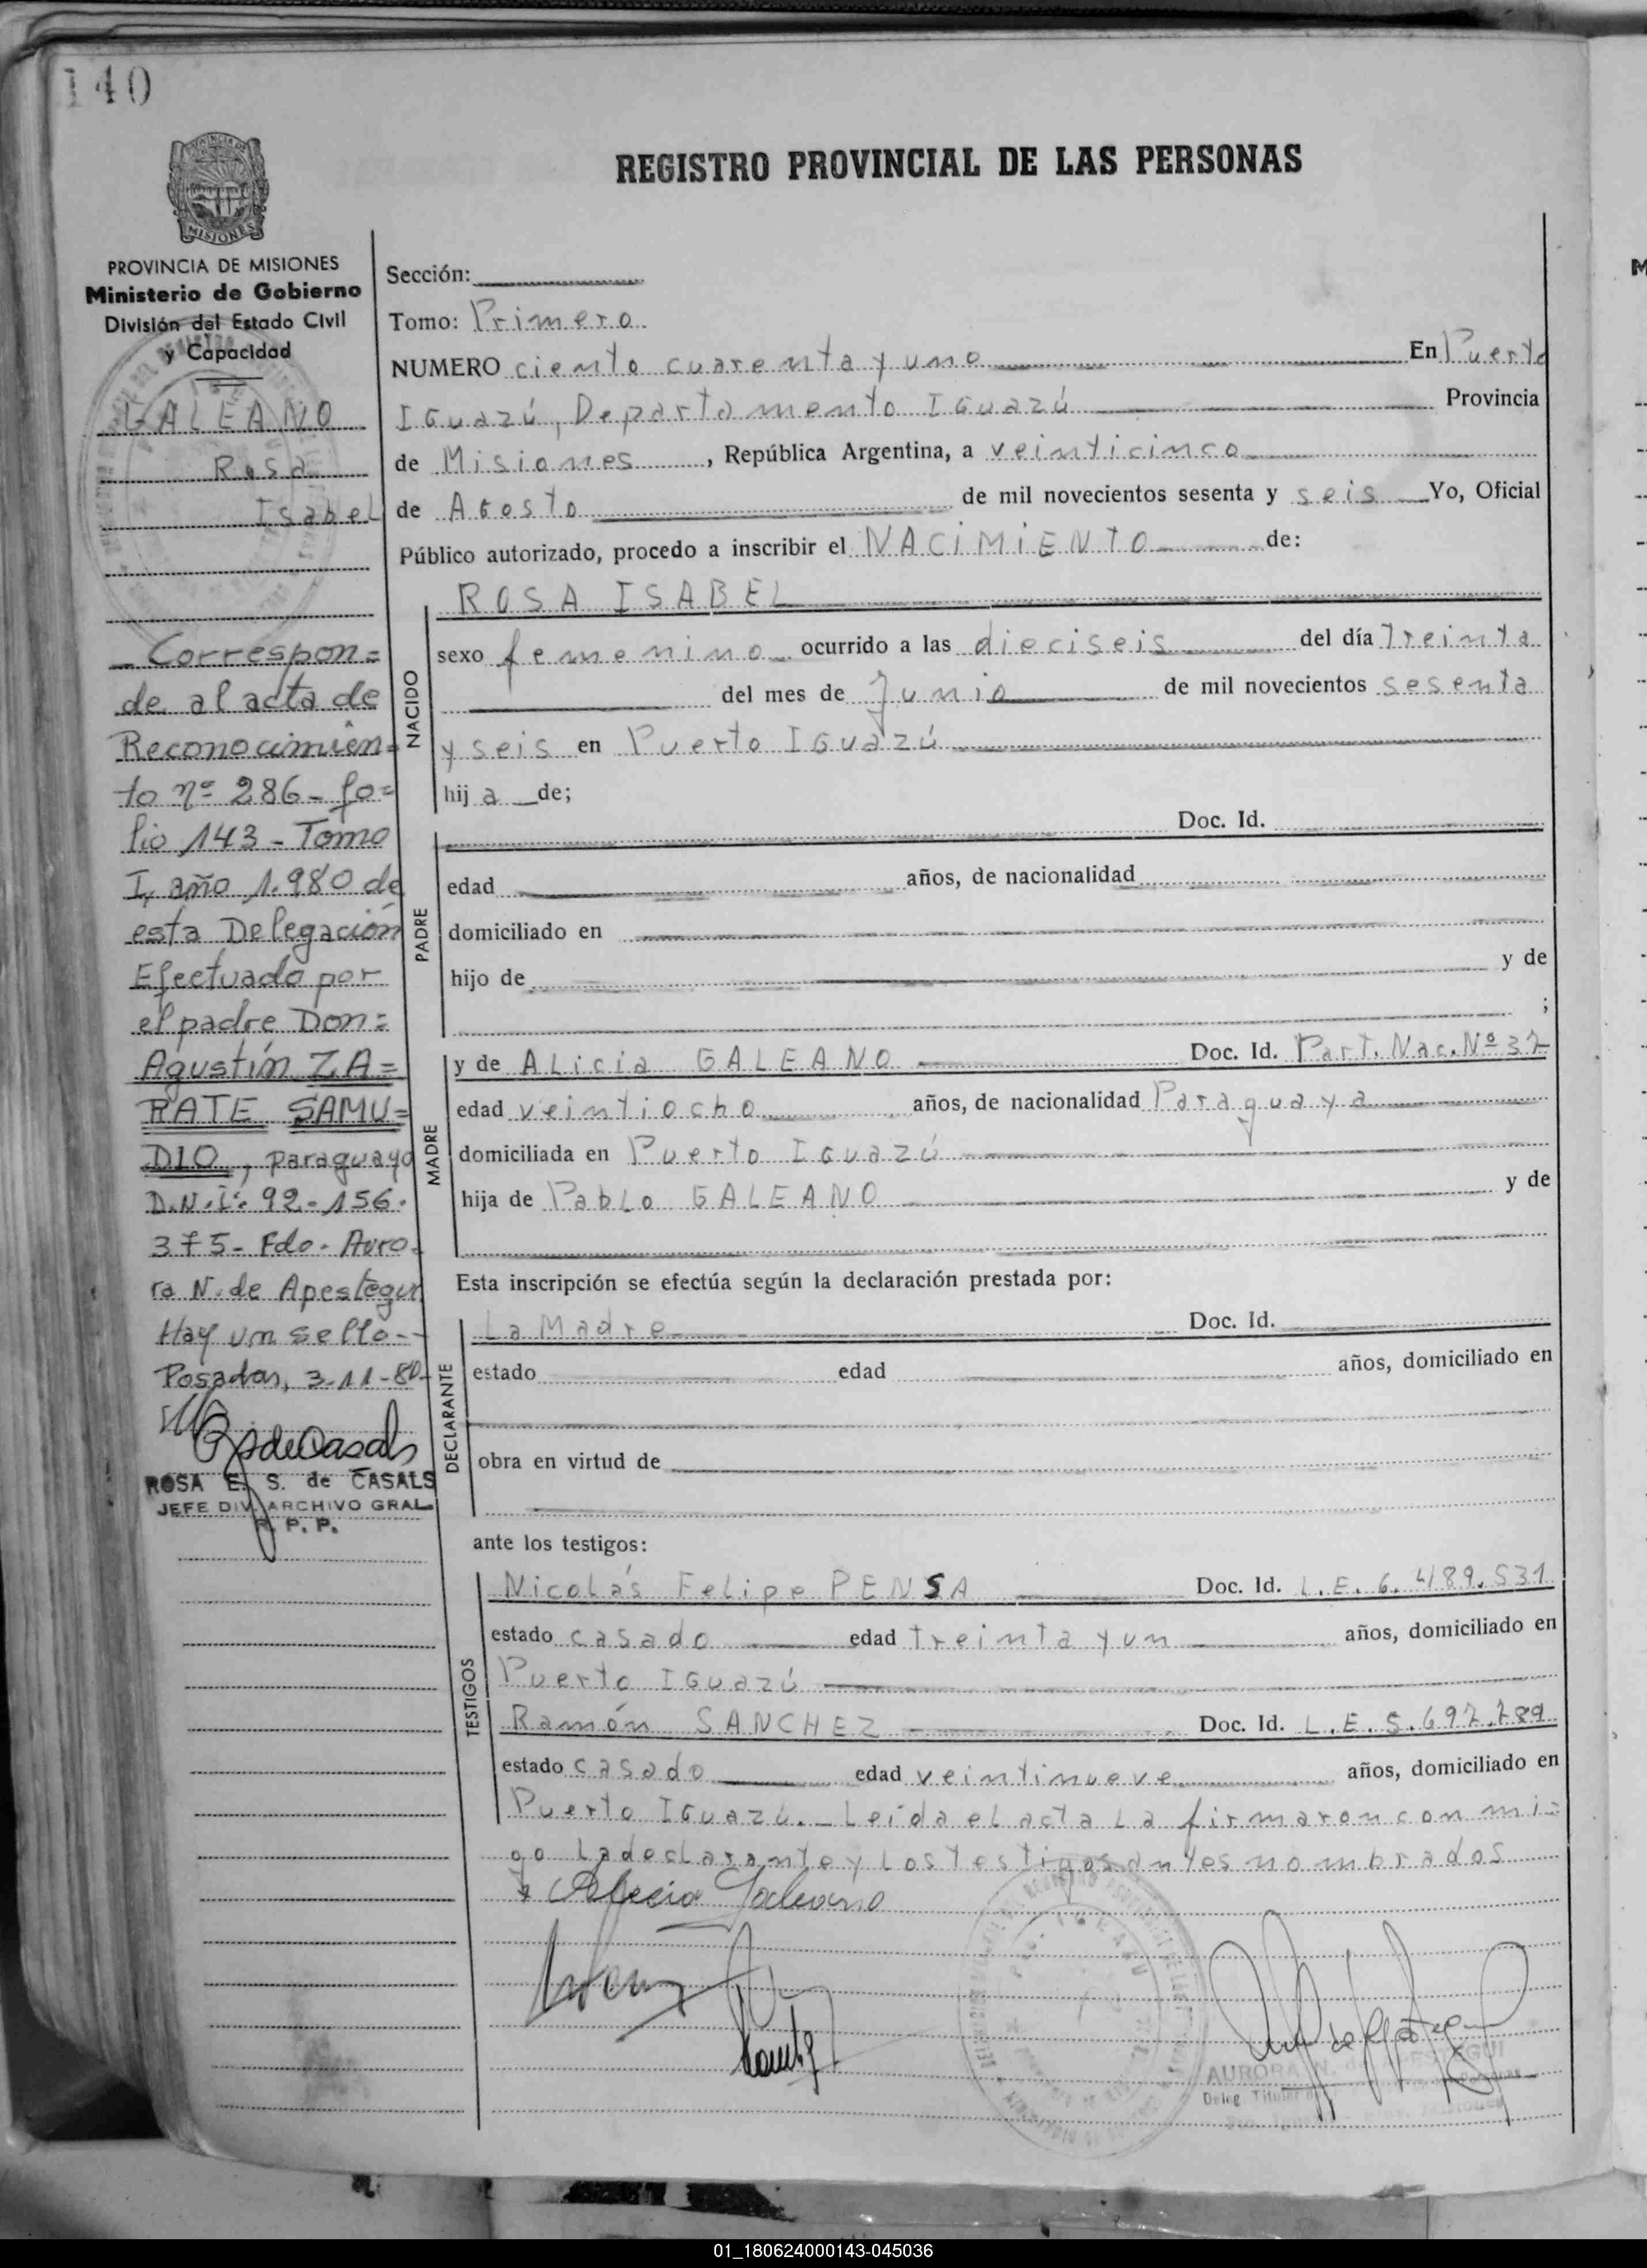 140
REGISTRO PROVINCIAL DE LAS PERSONAS
MISIONES
PROVINCIA DE MISIONES
Ministerio de Gobierno
División del Estado Civil
y Capacidad
GALEANO
Rosa
Isabel
Correspon=
de al acta de
Reconocimien=
to nº 286 - fo=
lio 143 - Tomo
I, año 1.980 de
esta Delegación
Efectuado por
el padre Don=
Agustín ZA=
RATE SAMU=
DIO, paraguayo
D.N.I: 92-156.
375- Fdo. Auro.
ra N. de Apestegui
Hay un sello-
Posadas, 3-11-80-
ROSA E. S. de CASALS
JEFE DIV. ARCHIVO GRAL.
R. P. P.
Sección:
Tomo: Primero
NUMERO ciento cuarenta y uno En Puerto
Iguazú, Departamento Iguazú Provincia
de Misiones, República Argentina, a veinticinco
de Agosto de mil novecientos sesenta y seis Yo, Oficial
Público autorizado, procedo a inscribir el NACIMIENTO de:
NACIDO
ROSA ISABEL
sexo femenino ocurrido a las dieciseis del día treinta
del mes de Junio de mil novecientos sesenta
y seis en Puerto Iguazú
hij a de;
PADRE
Doc. Id.
edad años, de nacionalidad
domiciliado en
hijo de y de
;
MADRE
y de Alicia GALEANO Doc. Id. Part. Nac. Nº 37
edad veintiocho años, de nacionalidad Paraguaya
domiciliada en Puerto Iguazú
hija de Pablo GALEANO y de
Esta inscripción se efectúa según la declaración prestada por:
DECLARANTE
La Madre Doc. Id.
estado edad años, domiciliado en
obra en virtud de
ante los testigos:
TESTIGOS
Nicolás Felipe PENSA Doc. Id. L.E. 6.489.531
estado casado edad treinta y un años, domiciliado en
Puerto Iguazú
Ramón SANCHEZ Doc. Id. L.E. 5.697.789
estado casado edad veintinueve años, domiciliado en
Puerto Iguazú. _ Leida el acta la firmaron con mi=
go la declarante y los testigos antes nombrados
Alicia Galeano
AURORA N. de APESTEGUI
Deleg. Titular
01_180624000143-045036